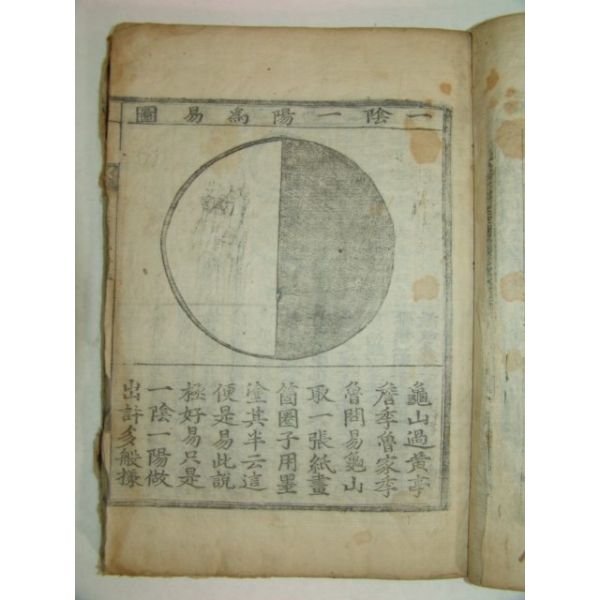 一陰一陽爲易圖
龜山過黃亭
詹季魯家季
魯問易龜山
取一張紙畫
箇圈子用墨
塗其半云這
便是易此說
極好易只是
一陰一陽做
出許多般樣